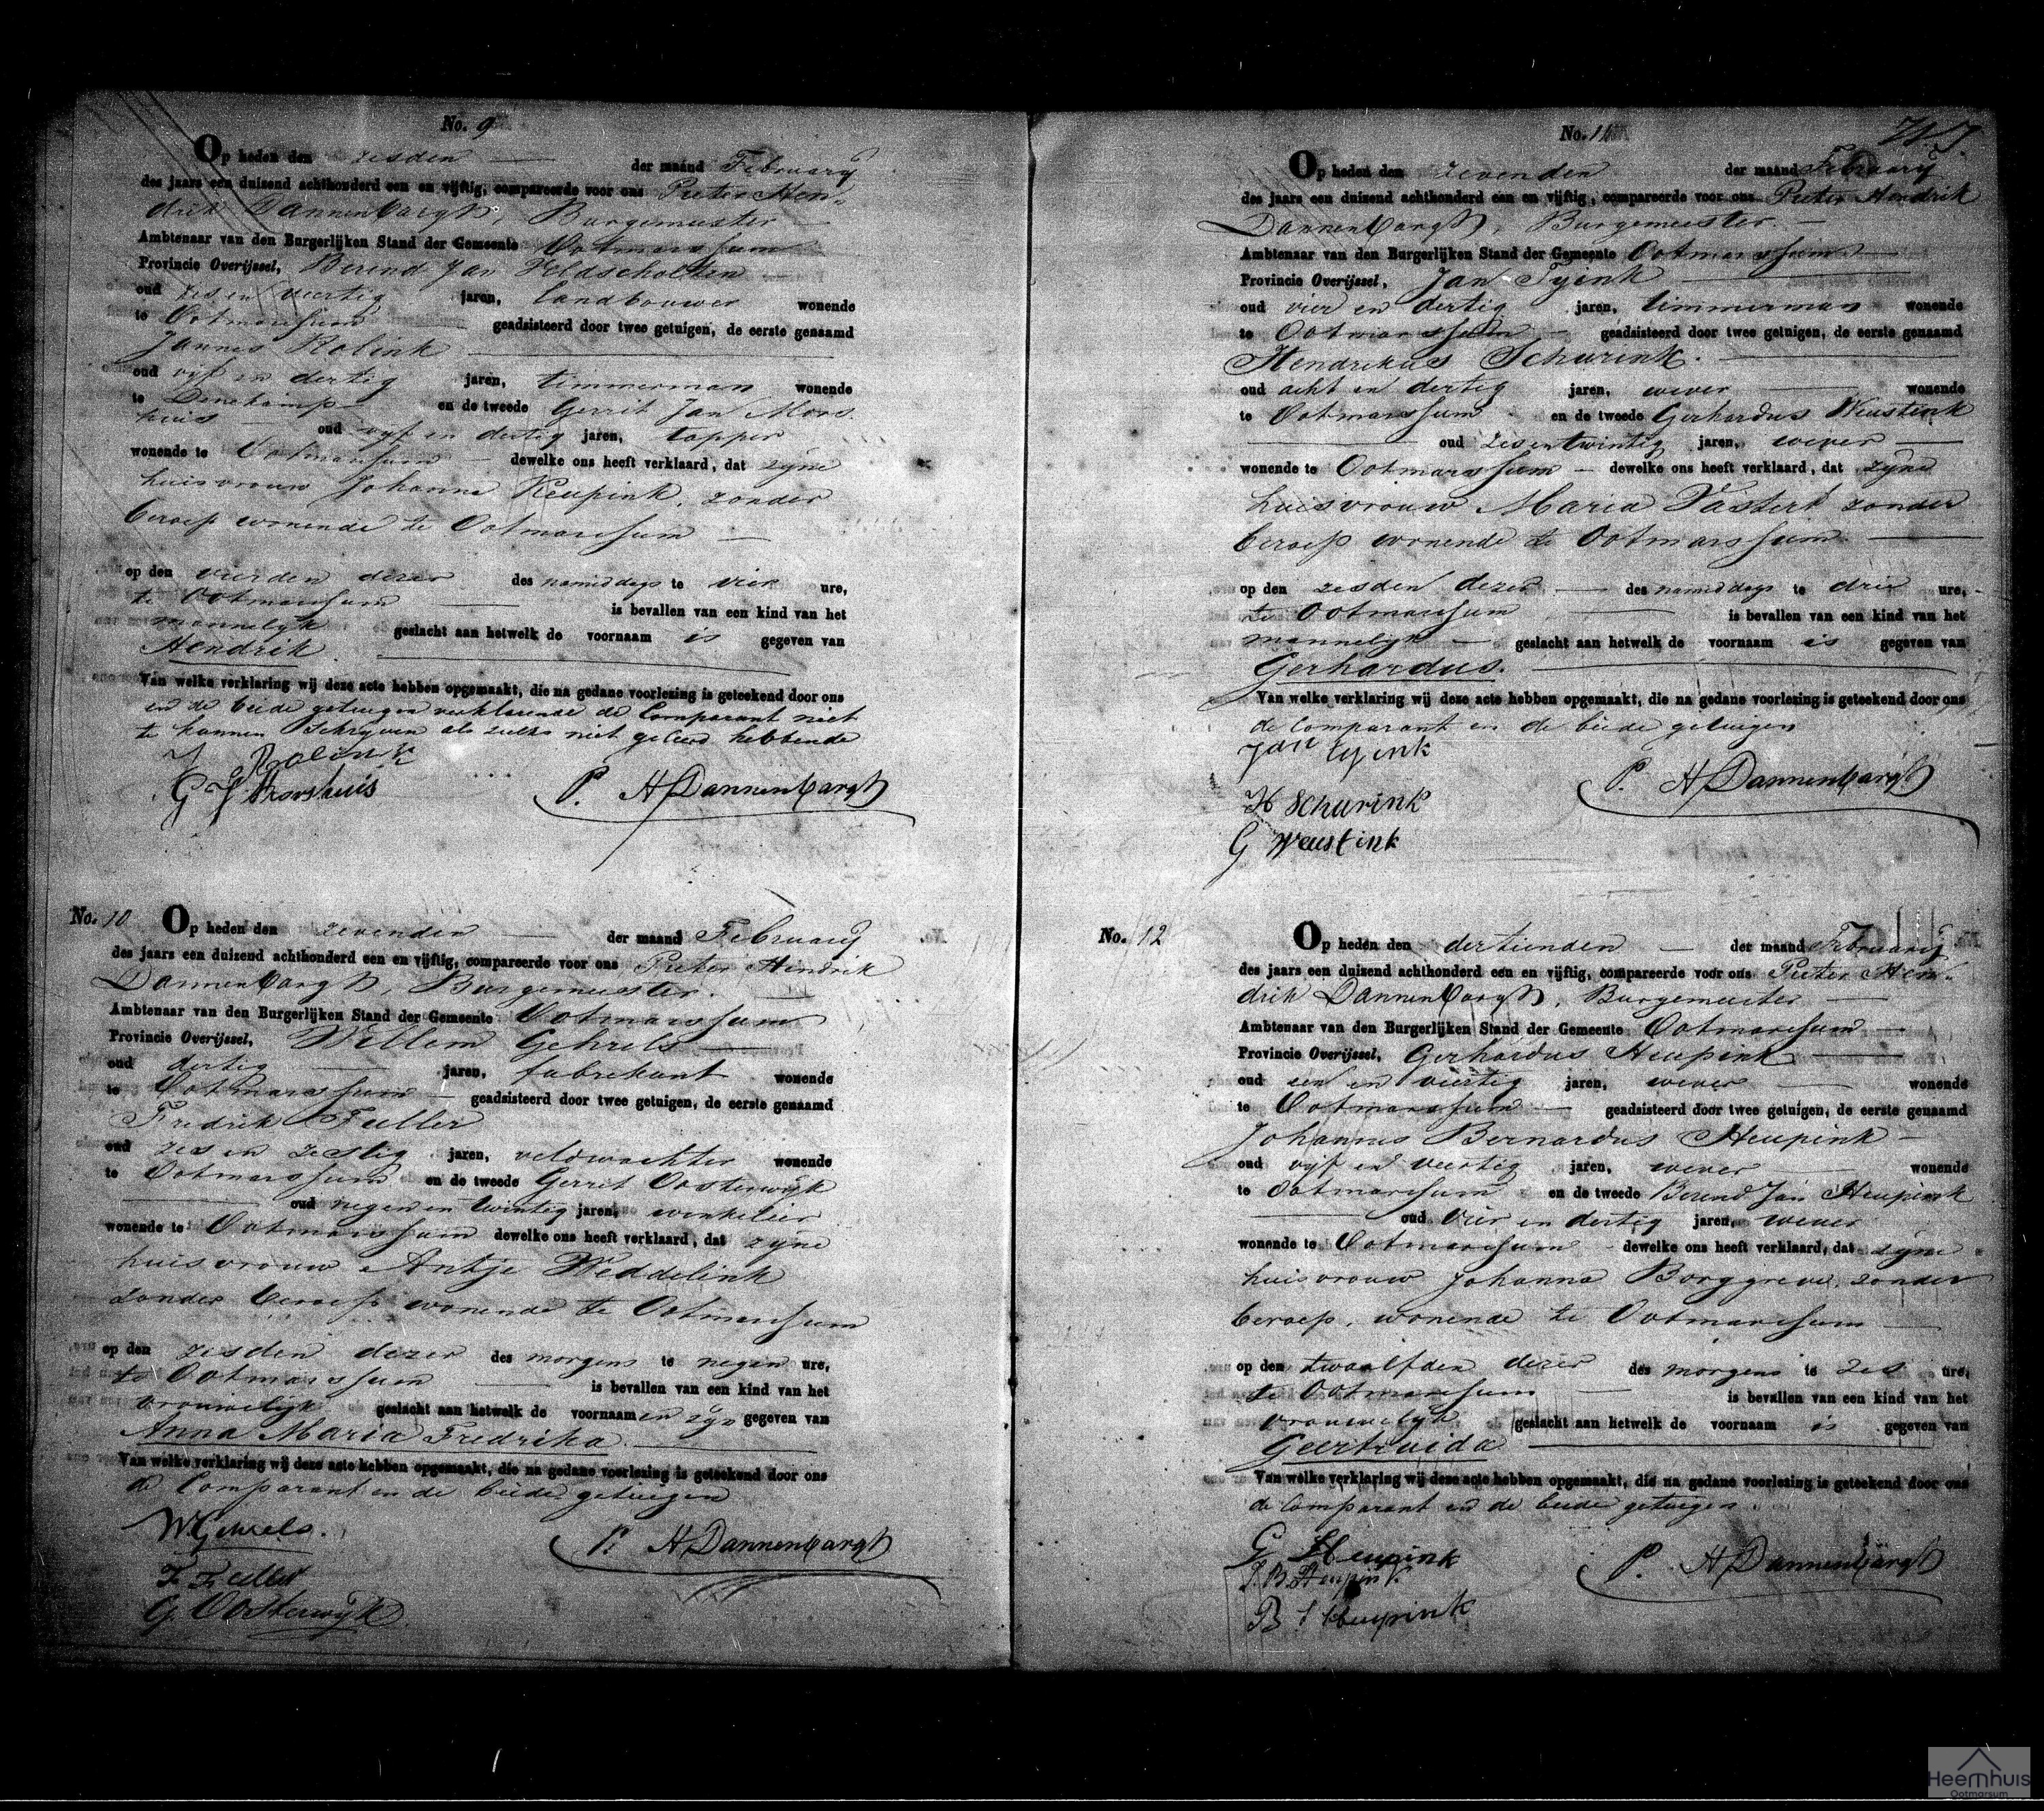 No. 9
Op heden den zesden der maand February
des jaars een duizend achthonderd een en vijftig, compareerde voor ons Pieter Hen-
drik Dannenbargh, Burgemeester
Ambtenaar van den Burgerlijken Stand der Gemeente Ootmarssum
Provincie Overijssel, Berend Jan Veldscholten
oud zes en veertig jaren, landbouwer wonende
te Ootmarssum geadsisteerd door twee getuigen, de eerste genaamd
Jannes Rolink
oud vijf en dertig jaren, timmerman wonende
te Denekamp en de tweede Gerrit Jan Mors
huis oud vijf en dertig jaren, tapper
wonende te Ootmarssum dewelke ons heeft verklaard, dat zyne
huisvrouw Johanna Reupink, zonder
beroep wonende te Ootmarssum
op den vierden dezer des namiddags te vier ure,
te Ootmarssum is bevallen van een kind van het
mannelyk geslacht aan hetwelk de voornaam is gegeven van
Hendrik
Van welke verklaring wij deze acte hebben opgemaakt, die na gedane voorlezing is geteekend door ons
en de beide getuigen verklarende de Comparant niet
te kunnen Schryven als zulks niet geleerd hebbende
J Rolink
G J Morshuis P. H Dannenbargh
No. 10 Op heden den zevenden der maand February
des jaars een duizend achthonderd een en vijftig, compareerde voor ons Pieter Hendrik
Dannenbargh, Burgemeester.
Ambtenaar van den Burgerlijken Stand der Gemeente Ootmarssum
Provincie Overijssel, Willem Gehrels
oud dertig jaren, fabrekant wonende
te Ootmarssum geadsisteerd door twee getuigen, de eerste genaamd
Fredrik Fuller
oud zes en zestig jaren, veldwachter wonende
te Ootmarssum en de tweede Gerrit Oosterwyk
oud negen en twintig jaren, winkelier
wonende te Ootmarssum dewelke ons heeft verklaard, dat zyne
huisvrouw Antje Weddelink
zonder beroep wonende te Ootmarssum
op den zesden dezer des morgens te negen ure,
te Ootmarssum is bevallen van een kind van het
vrouwelyk geslacht aan hetwelk de voornaamen zyn gegeven van
Anna Maria Fredrika
Van welke verklaring wij deze acte hebben opgemaakt, die na gedane voorlezing is geteekend door ons
de Comparant en de beide getuigen
W Gehrels.
P. H Dannenbargh
F Fuller
G. Oosterwyk
No. 11
Op heden den zevenden der maand February
des jaars een duizend achthonderd een en vijftig, compareerde voor ons Pieter Hendrik
Dannenbargh, Burgemeester.
Ambtenaar van den Burgerlijken Stand der Gemeente Ootmarssum
Provincie Overijssel, Jan Tyink
oud vier en dertig jaren, timmerman wonende
te Ootmarssum geadsisteerd door twee getuigen, de eerste genaamd
Hendrikus Schurink.
oud acht en dertig jaren, wever wonende
te Ootmarssum en de tweede Gerhardus Weustink
oud zes en twintig jaren, wever
wonende te Ootmarssum dewelke ons heeft verklaard, dat zyne
huisvrouw Maria Vastert zonder
beroep wonende te Ootmarssum
op den zesden dezer des namiddags te drie ure,
te Ootmarssum is bevallen van een kind van het
mannelyk geslacht aan hetwelk de voornaam is gegeven van
Gerhardus.
Van welke verklaring wij deze acte hebben opgemaakt, die na gedane voorlezing is geteekend door ons
de Comparant en de beide getuigen
Jan Tyink
P. H Dannenbargh
H Schurink
G Weustink
No. 12 Op heden den dertienden der maand February
des jaars een duizend achthonderd een en vijftig, compareerde voor ons Pieter Hen-
drik Dannenbargh, Burgemeester
Ambtenaar van den Burgerlijken Stand der Gemeente Ootmarssum
Provincie Overijssel, Gerhardus Heupink
oud een en veertig jaren, wever wonende
te Ootmarssum geadsisteerd door twee getuigen, de eerste genaamd
Johannes Bernardus Heupink
oud vijf en veertig jaren, wever wonende
te Ootmarssum en de tweede Berend Jan Heupink
oud vier en dertig jaren, wever
wonende te Ootmarssum dewelke ons heeft verklaard, dat zyne
huisvrouw Johanna Borggreve, zonder
beroep, wonende te Ootmarssum
op den twaalfden dezer des morgens te zes ure,
te Ootmarssum is bevallen van een kind van het
vrouwelyk geslacht aan hetwelk de voornaam is gegeven van
Geertruida
Van welke verklaring wij deze acte hebben opgemaakt, die na gedane voorlezing is geteekend door ons
de Comparant en de beide getuigen
G Heupink
J. B. Heupink P. H Dannenbargh
B J Heupink
Heemhuis
Ootmarsum